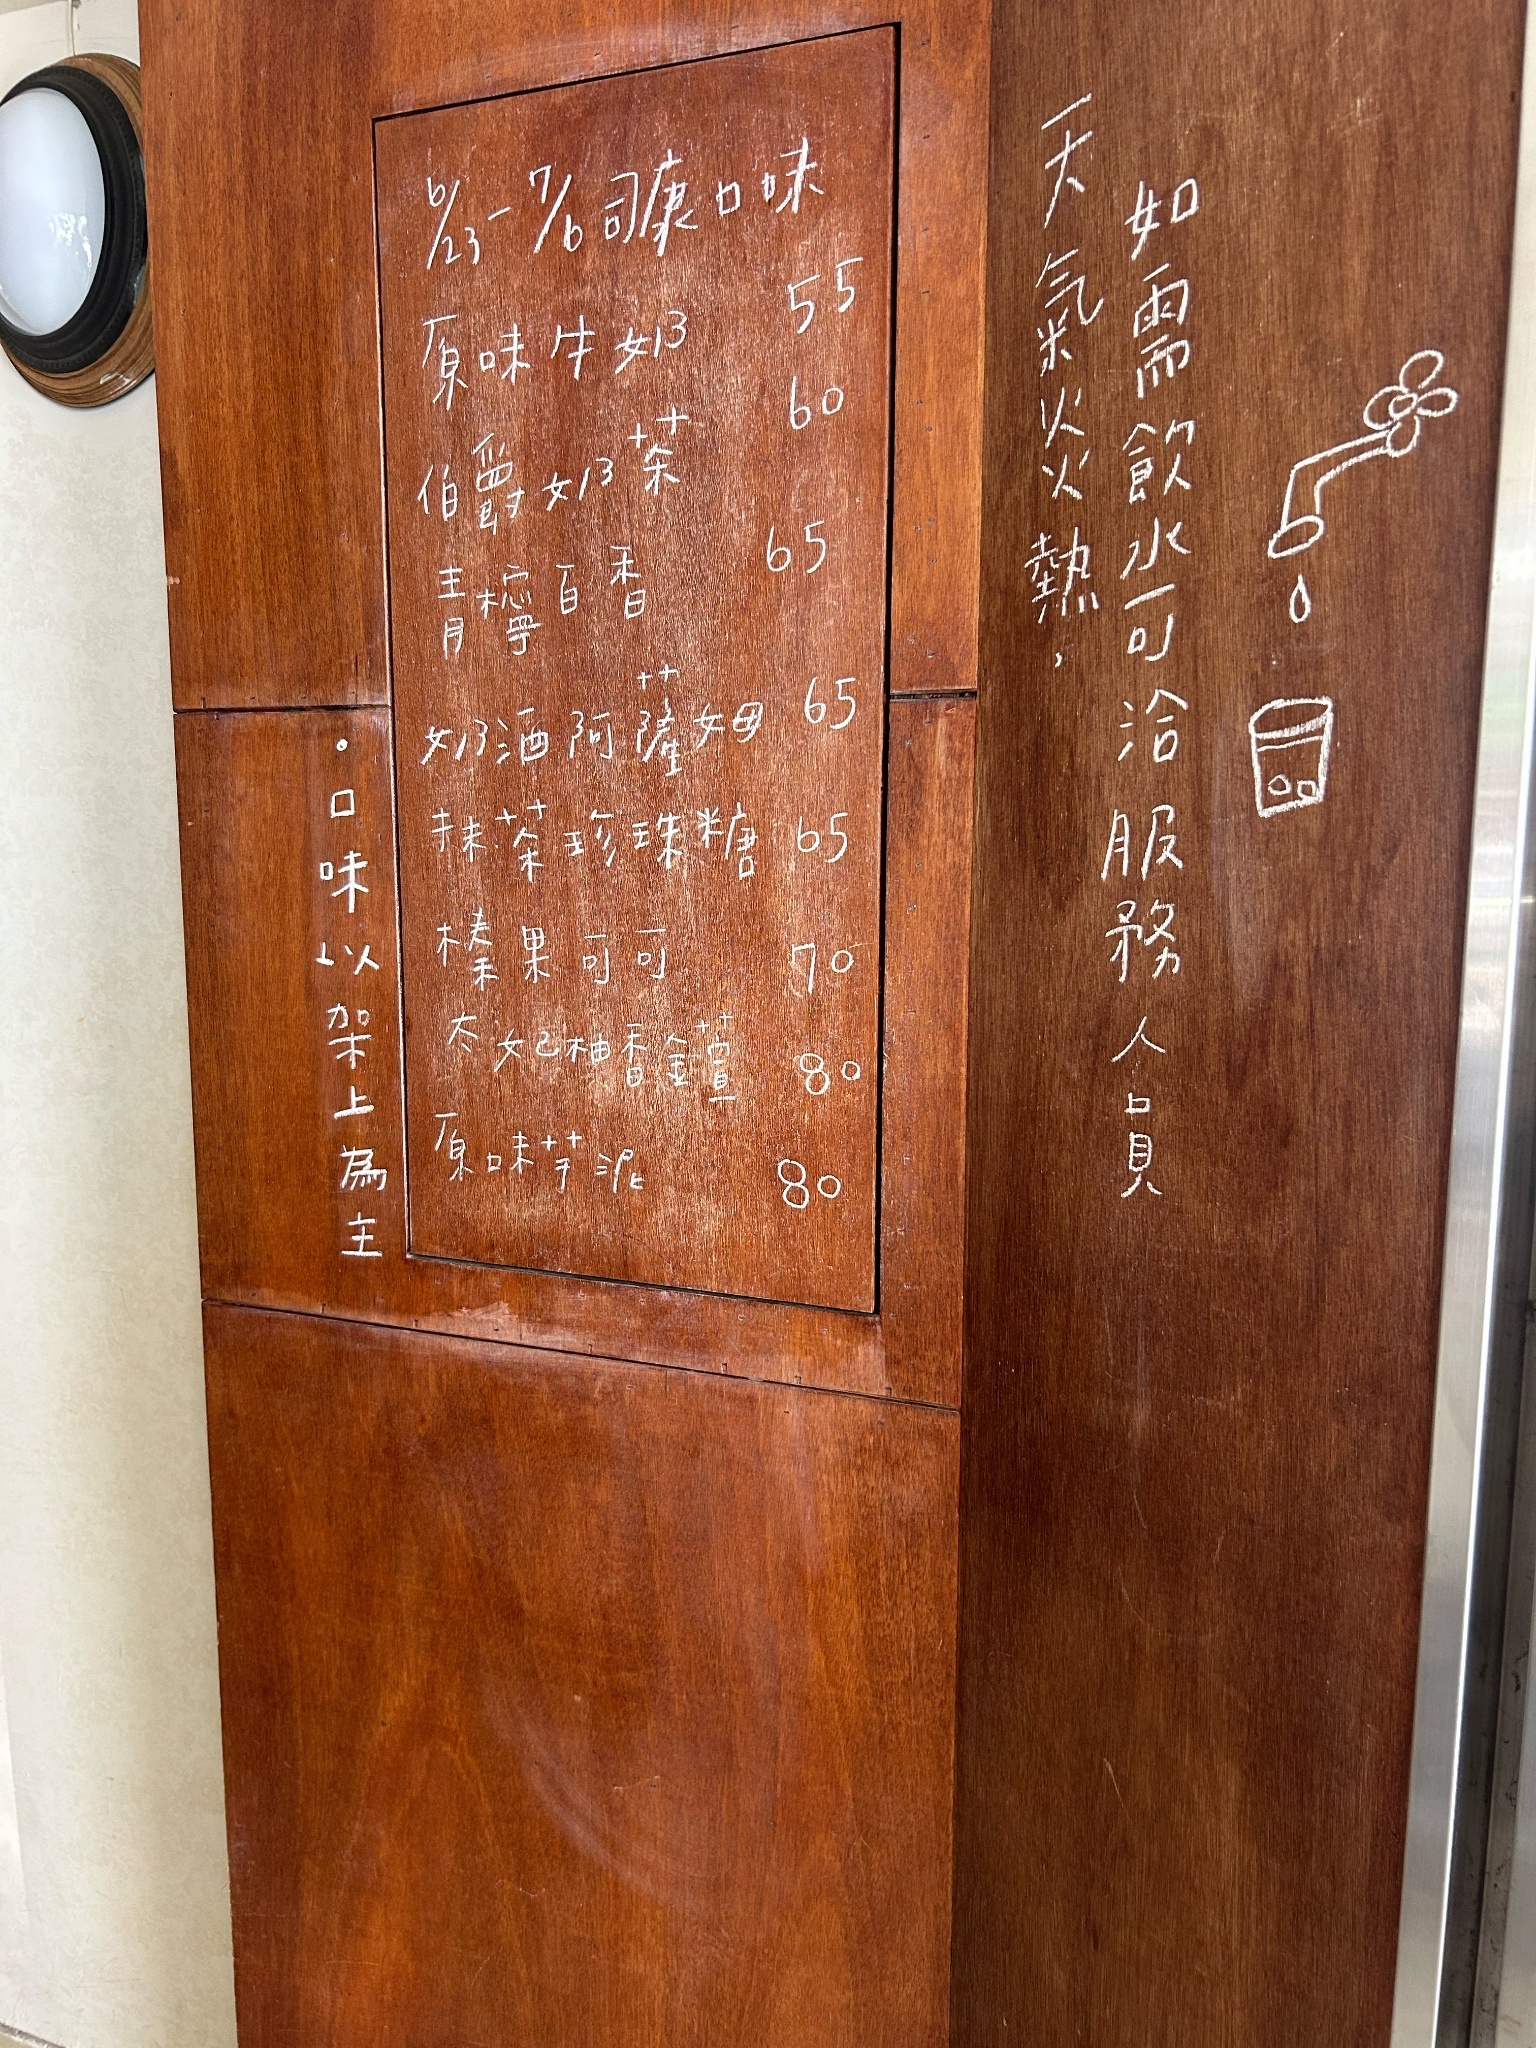 6/23-7/6司康口味
原味牛奶 55
伯爵奶茶 60
青檸百香 65
奶酒阿薩姆 65
抹茶珍珠糖 65
榛果可可 70
太妃柚香金萱 80
原味芋泥 80
•口味以架上為主
天氣炎熱，
如需飲水可洽服務人員